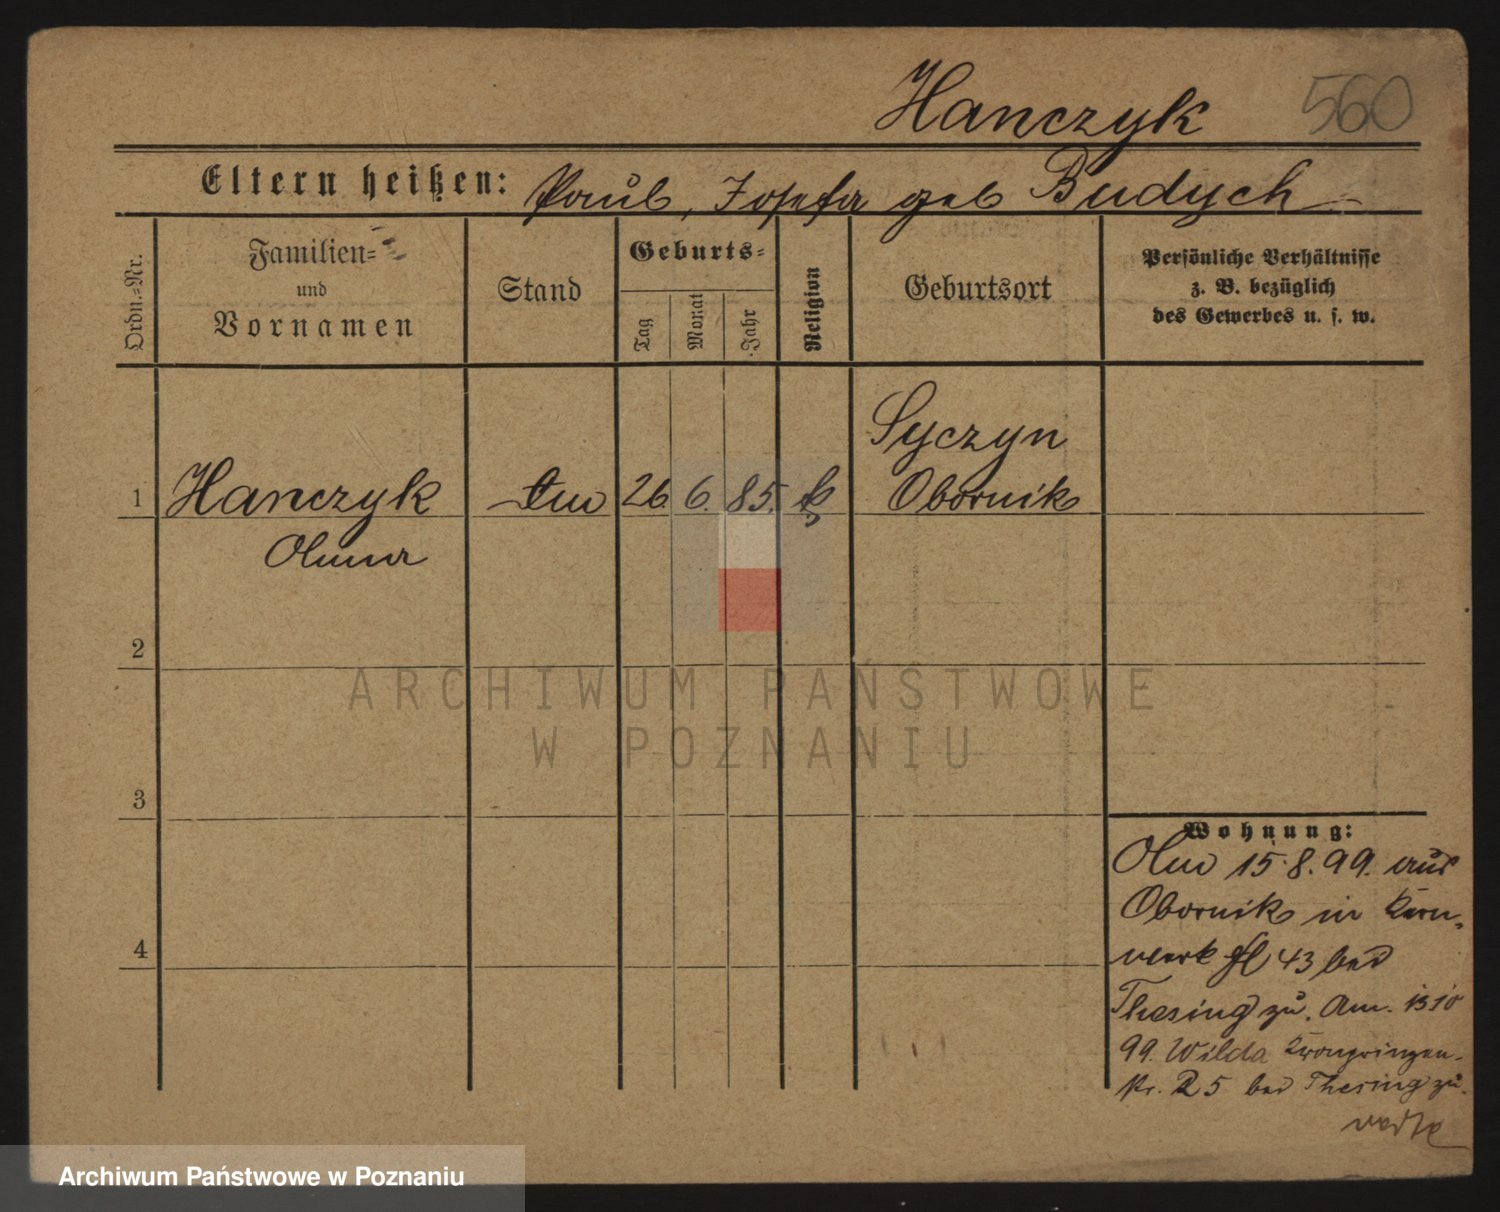 Hanczyk 560
Eltern heißen: Paul, Josefa geb Budych
Ordn.-Nr.
Familien-
und
Vornamen
Stand
Geburts-
Tag
Monat
Jahr
Religion
Geburtsort
Persönliche Verhältnisse
z. B. bezüglich
des Gewerbes u. s. w.
Syczyn
1 Hanczyk 26. 6. 85. k Obornik
Anna
2
3
4
Wohnung:
15.8.99. aus
Obornik in Kern-
werk 43 bei
Thesing zu. Am. 13 10
99. Wilda Kronprinzen-
str. 25 bei Thesing zu.
ARCHIWUM PAŃSTWOWE
W POZNANIU
Archiwum Państwowe w Poznaniu